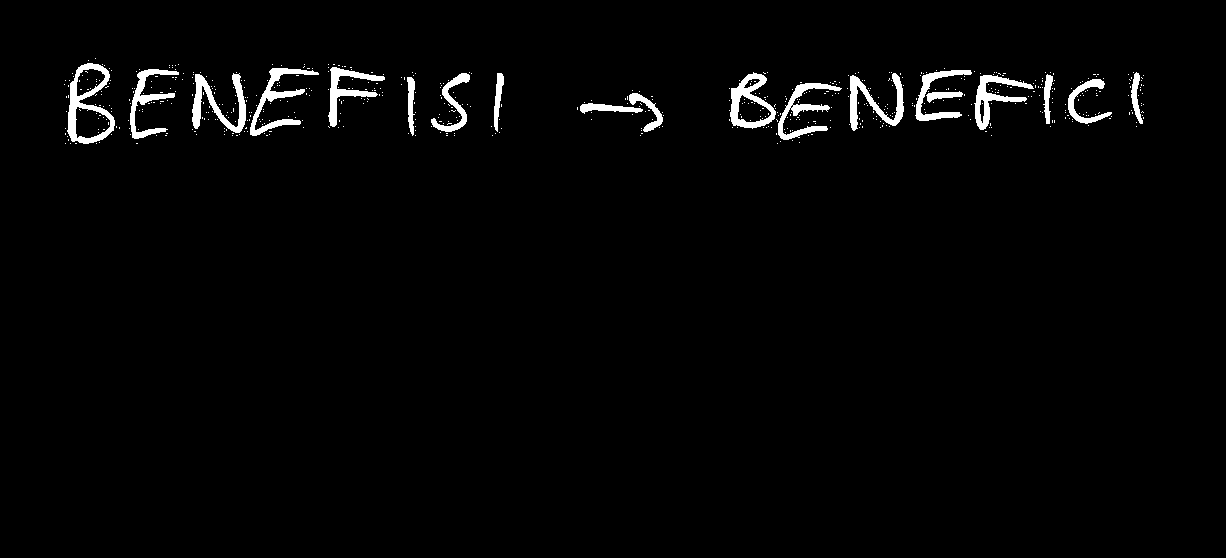 BENEFISI → BENEFICI